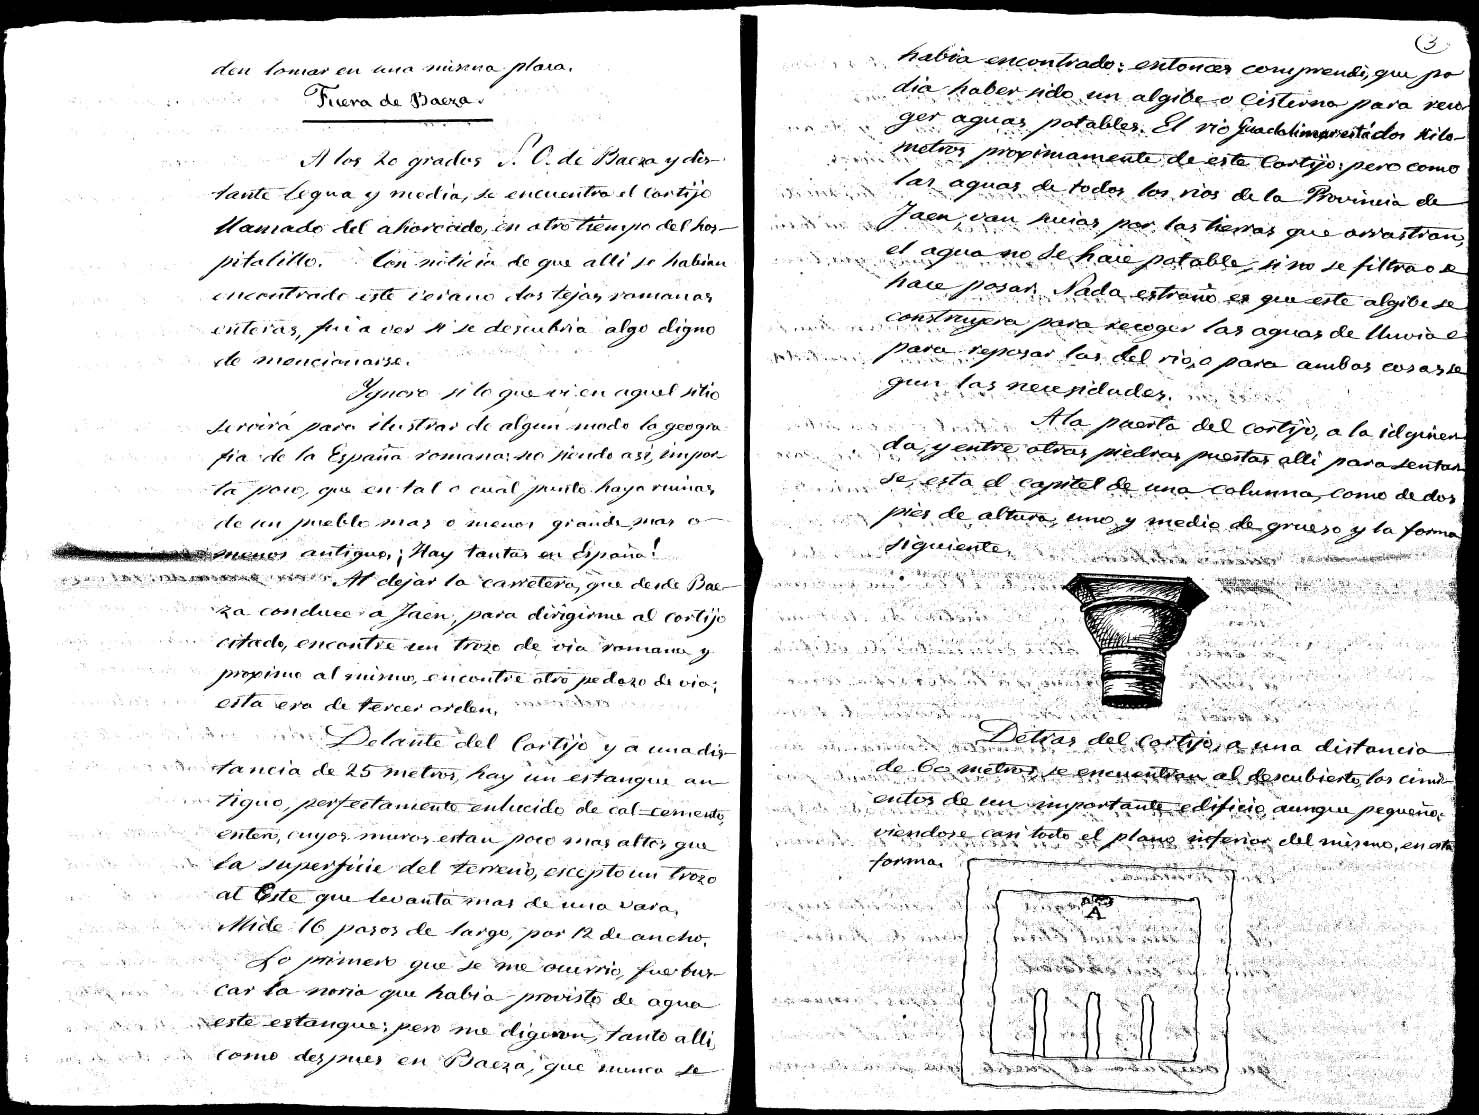 den tomar en una misma plaza.
Fuera de Baeza.
A los 20 grados S. O. de Baeza y dis-
tante legua y media, se encuentra el cortijo
llamado del ahorcado, en otro tiempo del hos-
pitalillo. Con noticia de que alli se habian
encontrado este verano dos tejas romanas
enteras, fui a ver si se descubria algo digno
de mencionarse.
Ygnoro si lo que vi en aquel sitio
servirá para ilustrar de algun modo la geogra
fia de la España romana: no siendo asi, impor
ta poco, que en tal o cual punto haya ruinas
de un pueblo mas o menos grande, mas o
menos antiguo. ¡Hay tantas en España!
Al dejar la carretera, que desde Bae-
za conduce a Jaen, para dirigirme al cortijo
citado, encontré un trozo de via romana y
proximo al mismo, encontré otro pedazo de via;
esta era de tercer orden.
Delante del Cortijo y a una dis-
tancia de 25 metros, hay un estanque an
tiguo, perfectamente enlucido de cal-cemento,
entero, cuyos muros estan poco mas altos que
la superficie del terreno, escepto un trozo
al Este que levanta mas de una vara.
Mide 16 pasos de largo, por 12 de ancho.
Lo primero que se me ocurrio, fue bus-
car la noria que habia provisto de agua
este estanque; pero me digeron, tanto alli,
como despues en Baeza, que nunca se
3
habia encontrado: entonces comprendi, que po
dia haber sido un algibe o Cisterna para reco-
ger aguas potables. El rio Guadalimar está dos kilo-
metros proximamente de este Cortijo; pero como
las aguas de todos los rios de la Provincia de
Jaen, van sucias por las tierras que arrastran,
el agua no se hace potable, si no se filtra o se
hace posar. Nada estraño es que este algibe se
construyera para recoger las aguas de lluvia o
para reposar las del rio, o para ambas cosas se
gun las necesidades.
A la puerta del cortijo, a la izquier-
da, y entre otras piedras puestas alli para sentar-
se, esta el capitel de una columna, como de dos
pies de altura, uno y medio de grueso y la forma
siguiente.
Detras del cortijo, a una distancia
de 60 metros se encuentran al descubierto, los cimi-
entos de un importante edificio, aunque pequeño;
viendose casi todo el plano inferior del mismo, en esta
forma.
A